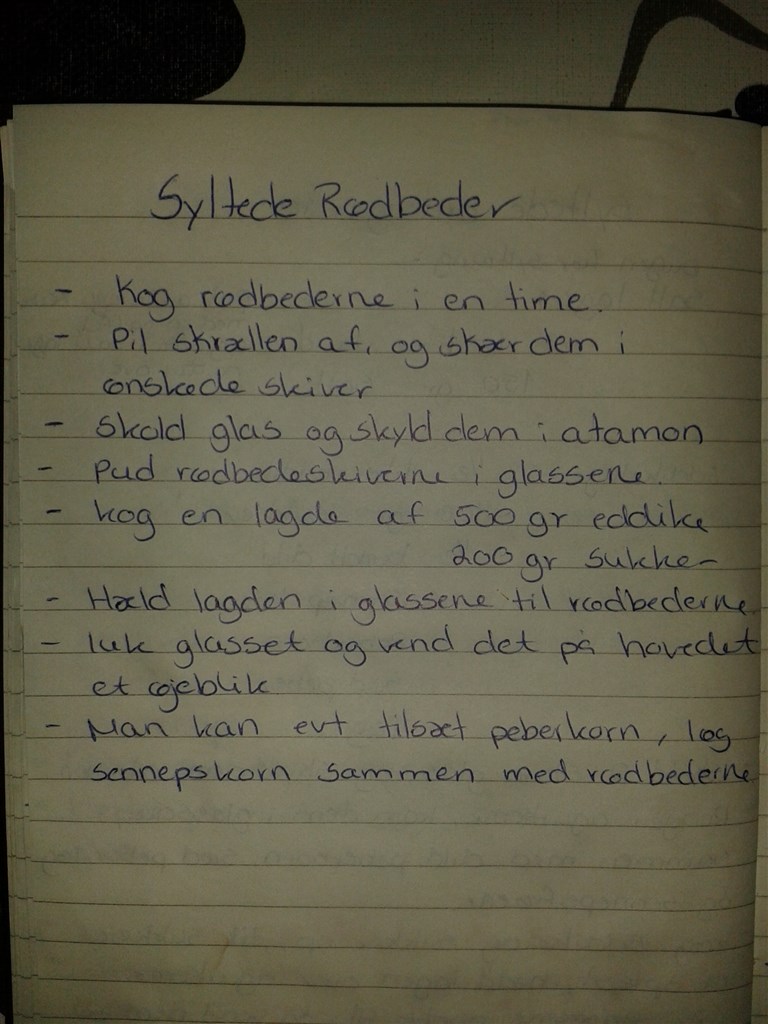 Syltede Rødbeder
- Kog rødbederne i en time.
- Pil skrællen af, og skær dem i
ønskede skiver
- Skold glas og skyld dem i atamon
- Put rødbedeskiverne i glassene.
- kog en lagde af 500 gr eddike
200 gr sukker
- Hæld lagden i glassene til rødbederne
- luk glasset og vend det på hovedet
et øjeblik
- Man kan evt tilsæt peberkorn, løg
sennepskorn sammen med rødbederne